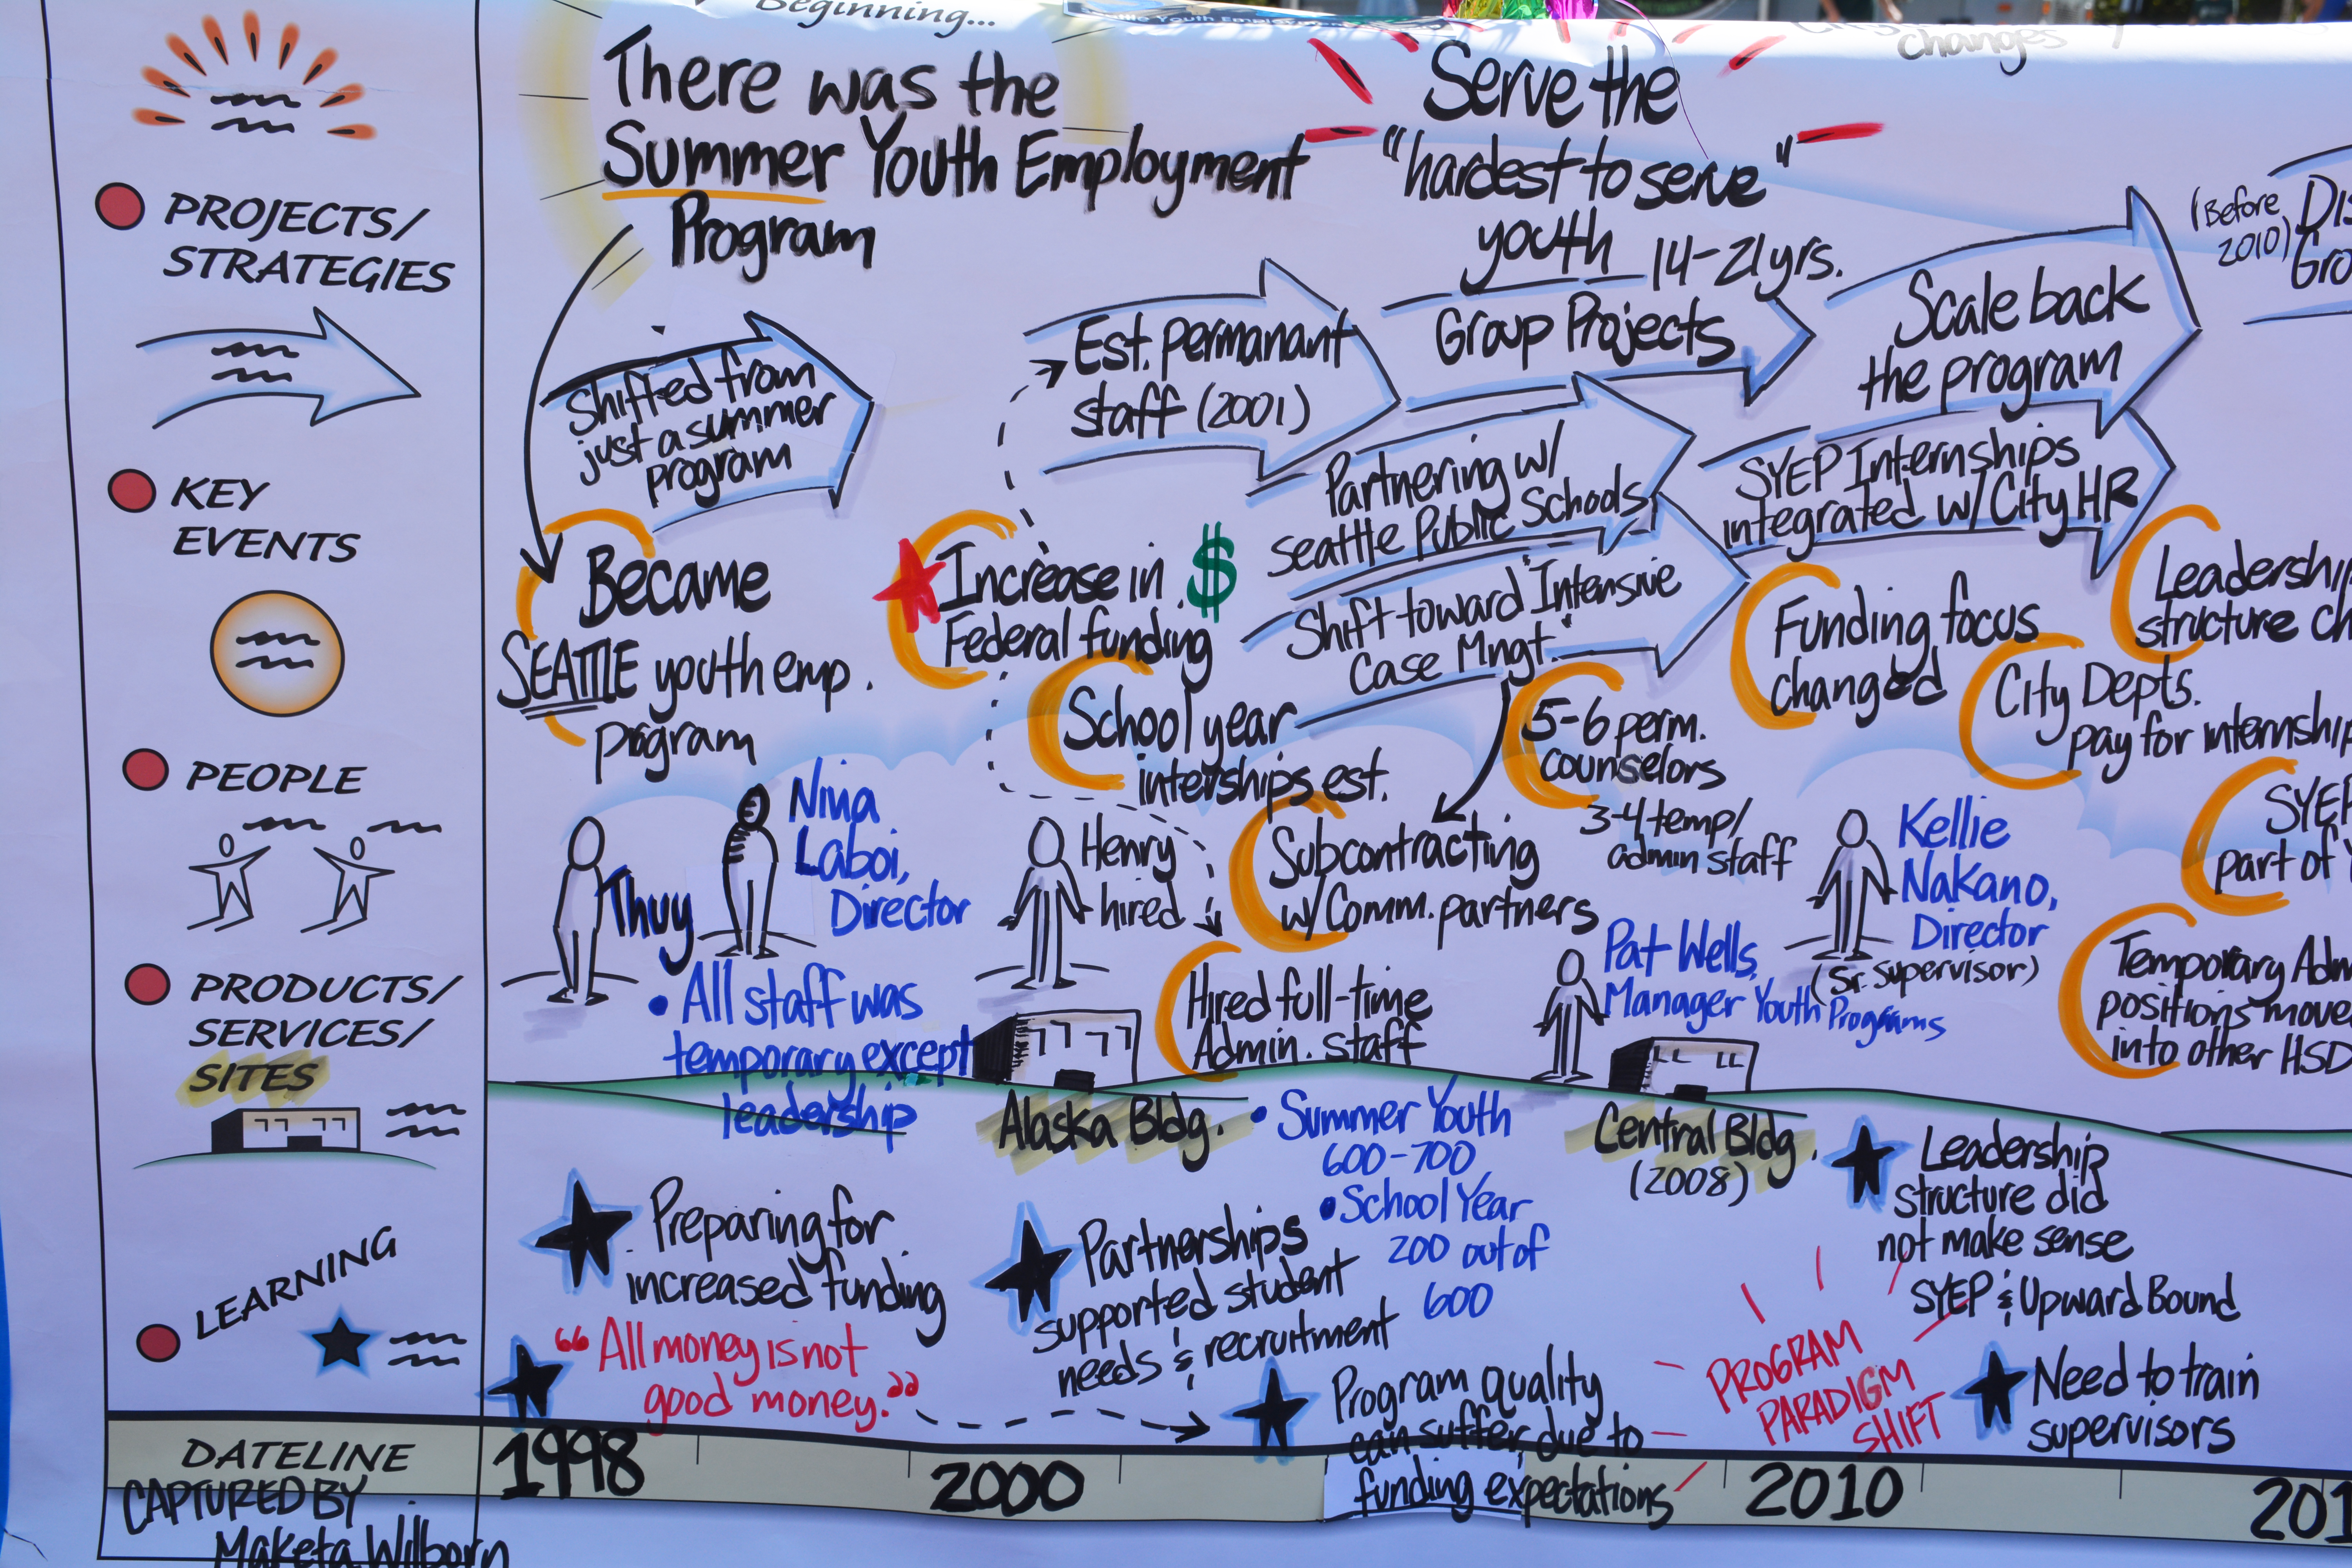 Beginning...
There was the
Summer Youth Employment
Program
Serve the
"hardest to serve"
youth 14-21 yrs.
changes
PROJECTS/
STRATEGIES
KEY
EVENTS
PEOPLE
PRODUCTS/
SERVICES/
SITES
LEARNING
DATELINE
CAPTURED BY
Maketa Wilborn
Shifted from
just a summer
program
Est. permanant
staff (2001)
Group Projects
Scale back
the program
(Before
2010)
Partnering w/
Seattle Public Schools
SYEP Internships
integrated w/ City HR
Shift toward "Intensive
Case Mngt."
Became
SEATTLE youth emp.
program
Increase in $
Federal funding
School year
interships est.
5-6 perm.
counselors
3-4 temp/
admin staff
Funding focus
changed
Leadership
structure
City Depts.
pay for internship
SYEP
part of
Temporary Adm
positions move
into other HSD
Thuy
Nina
Laboi,
Director
• All staff was
temporary except
leadership
Henry
hired
Subcontracting
w/ Comm. partners
Hired full-time
Admin. staff
Pat Wells,
Manager Youth Programs
Kellie
Nakano,
Director
(Sr. Supervisor)
Alaska Bldg.
• Summer Youth
600-700
• School Year
200 out of
600
Central Bldg.
(2008)
Preparing for
increased funding
"All money is not
good money."
Partnerships
supported student
needs & recruitment
Program quality
can suffer due to
funding expectations
PROGRAM
PARADIGM
SHIFT
Leadership
structure did
not make sense
SYEP & Upward Bound
Need to train
supervisors
1998
2000
2010
201